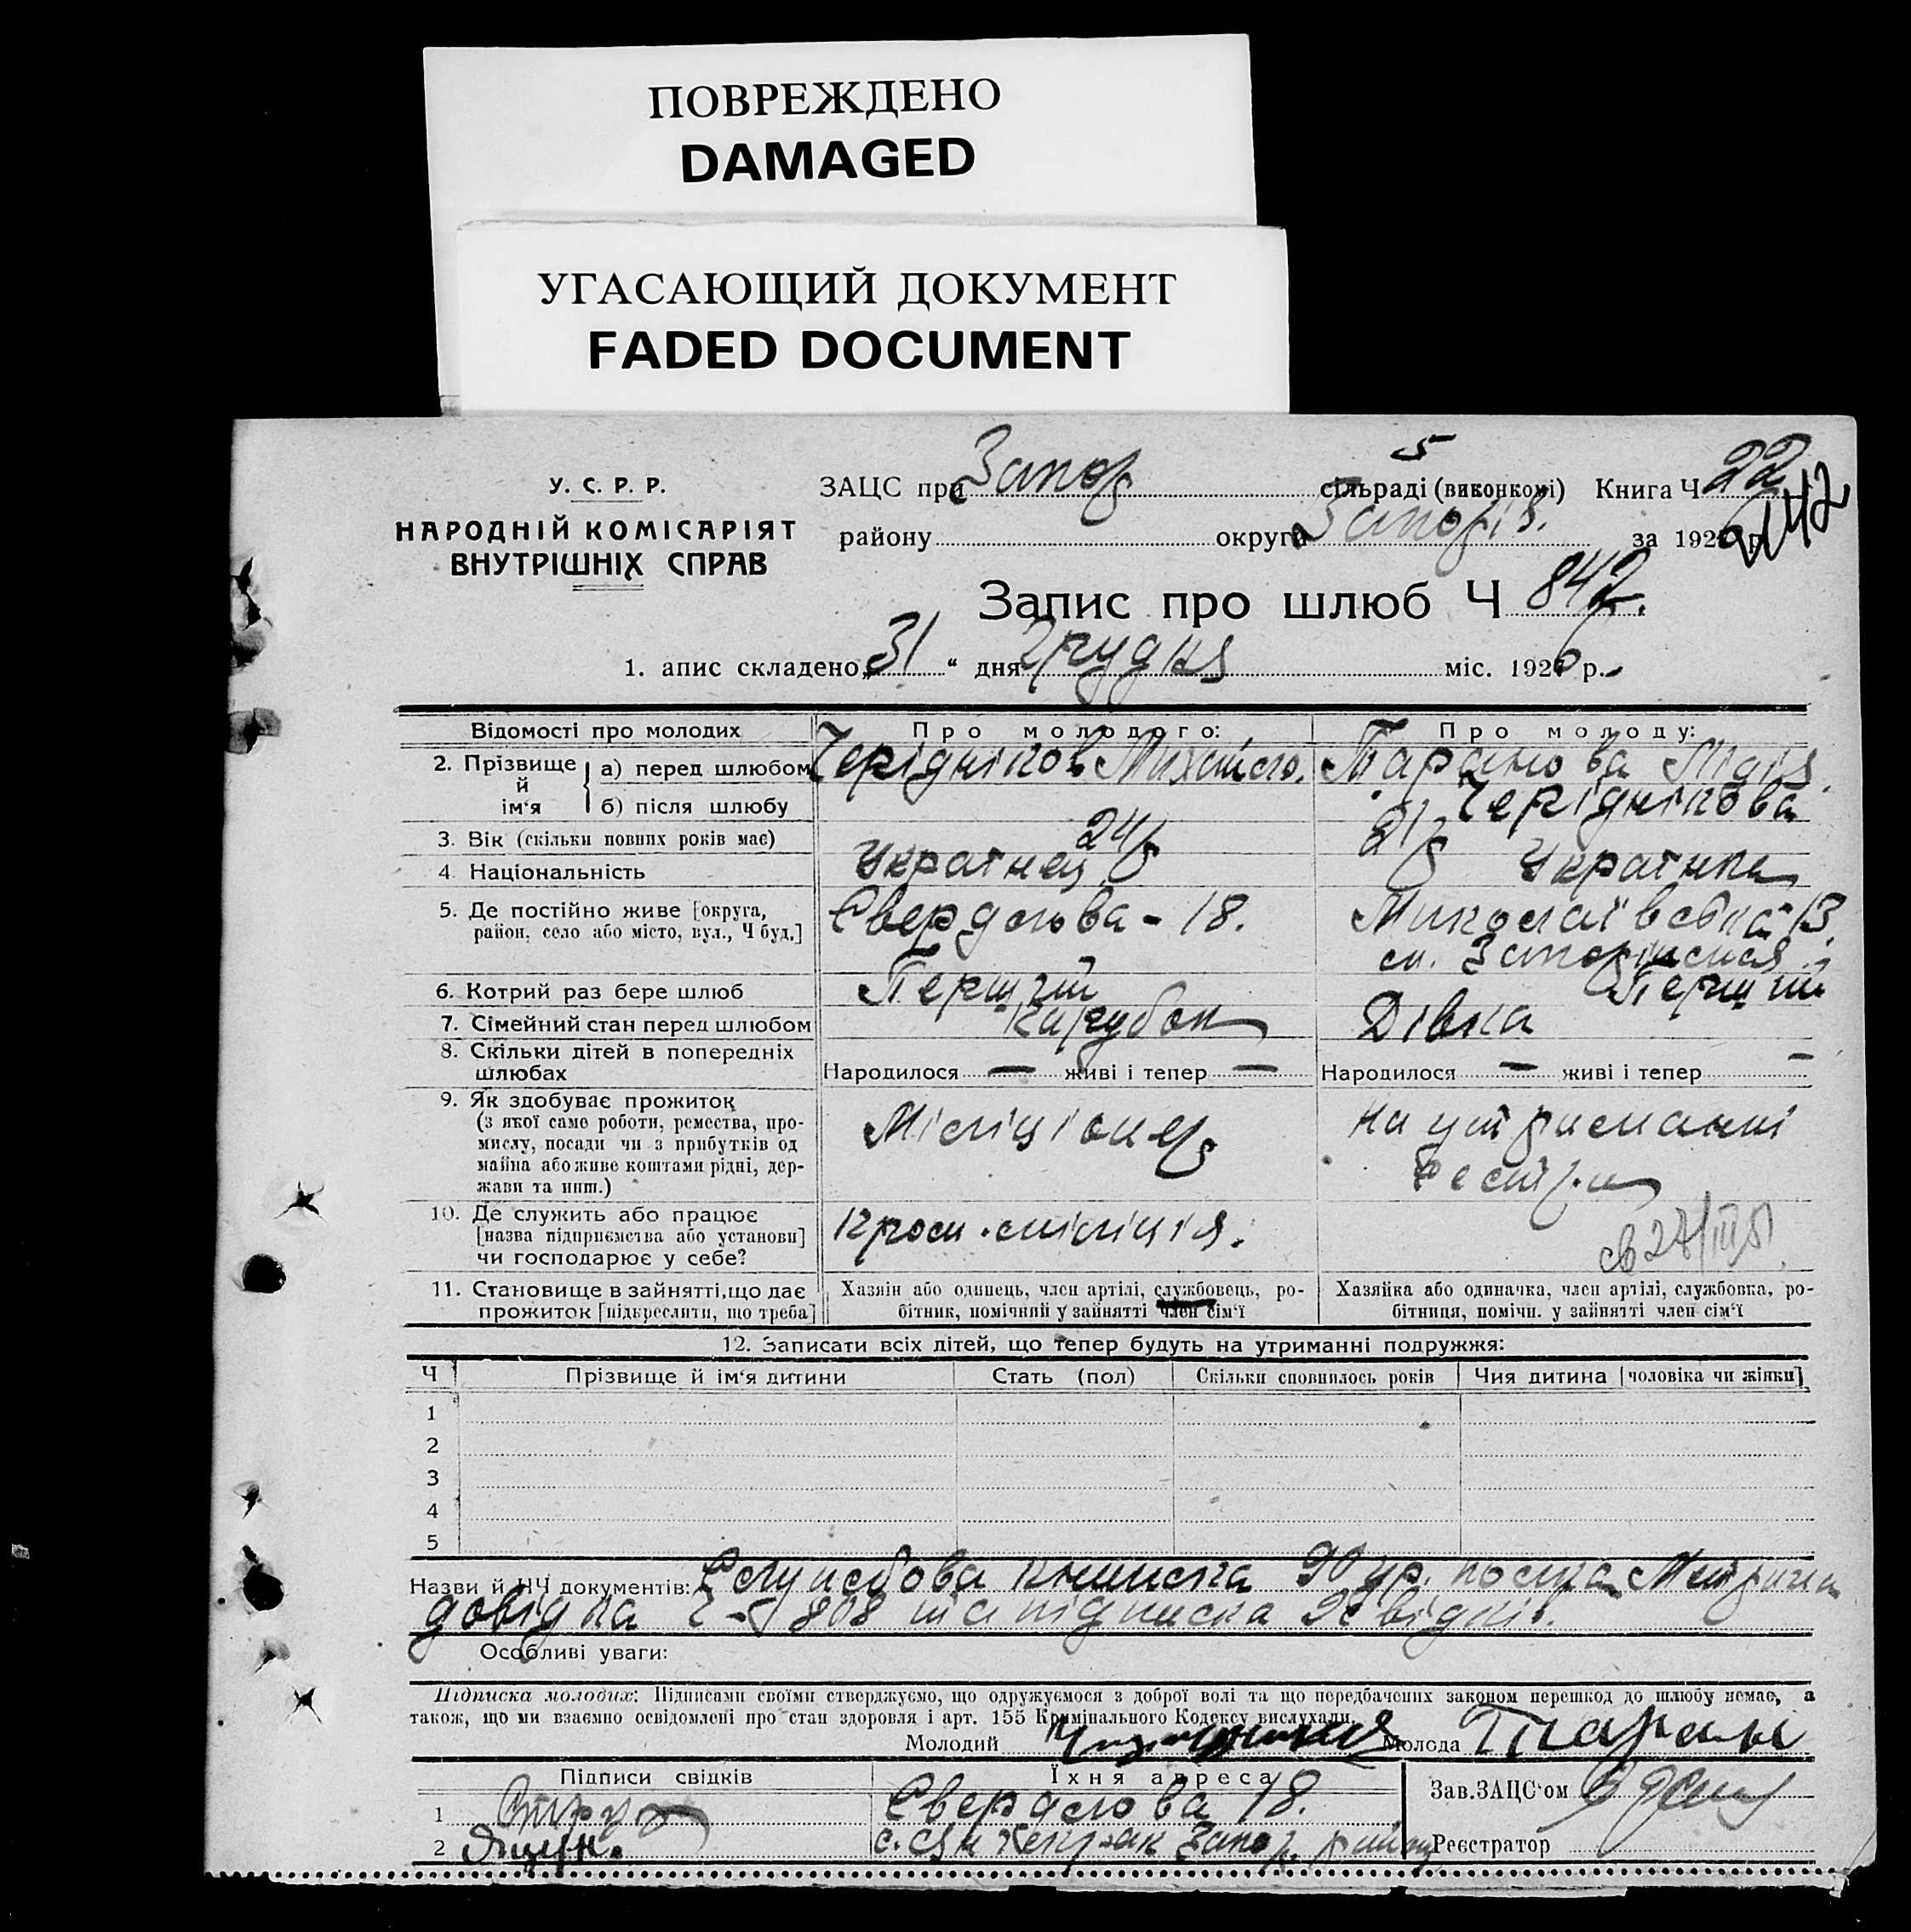 ПОВРЕЖДЕНО
DAMAGED
УГАСАЮЩИЙ ДОКУМЕНТ
FADED DOCUMENT
У. С. Р. Р.
НАРОДНІЙ КОМІСАРІЯТ
ВНУТРІШНІХ СПРАВ
ЗАЦС при Запор 5 сільраді (виконкомі) Книга Ч 22
району округи Запоріз. за 192 р.
Запис про шлюб Ч 842.
1. апис складено „31“ дня Грудня міс. 1926 р.
Відомості про молодих Про молодого: Про молоду:
2. Прізвище й ім'я а) перед шлюбом Черідніков Михайло. Таранова Лідія
б) після шлюбу Череднікова
3. Вік (скільки повних років має) 24 21
4. Національність Украінец Украінка
5. Де постійно живе [округа, район, село або місто, вул., Ч буд.] Свердлова - 18. Миколаївська 13.
6. Котрий раз бере шлюб Перший Перший
7. Сімейний стан перед шлюбом Парубок Дівка
8. Скільки дітей в попередніх шлюбах Народилося — живі і тепер — Народилося — живі і тепер —
9. Як здобуває прожиток Міліціонер На утриманні
(з якої саме роботи, ремества, про-
мислу, посади чи з прибутків од
майна або живе коштами рідні, дер-
жави та инш.) сестри
10. Де служить або працює
[назва підприємства або установи]
чи господарює у себе? міліція.
11. Становище в зайнятті, що дає
прожиток [підкреслити, що треба]
Хазяїн або одинець, член артілі, службовець, ро-
бітник, помічний у зайнятті член сім'ї
Хазяйка або одиначка, член артілі, службовка, ро-
бітниця, помічн. у зайнятті член сім'ї
12. Записати всіх дітей, що тепер будуть на утриманні подружжя:
Ч Прізвище й ім'я дитини Стать (пол) Скільки сповнилось років Чия дитина [чоловіка чи жінки]
1
2
3
4
5
Назви й ЧЧ документів: Службова книжка Метрична
довідка Ч 808 та підписка свідків.
Особливі уваги:
Підписка молодих: Підписами своїми стверджуємо, що одружуємося з доброї волі та що передбачених законом перешкод до шлюбу немає, а
також, що ми взаємно освідомлені про стан здоровля і арт. 155 Кримінального Кодексу вислухали.
Молодий Молода Таран
Підписи свідків Їхня адреса Зав. ЗАЦС'ом
1 Свердлова 18.
2 Яцун. Запор. району Реєстратор